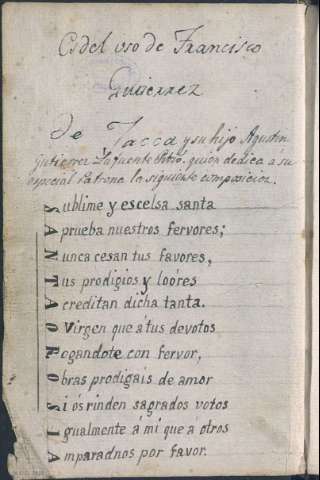 Es del uso de Francisco
Gutierrez
De Jacca y su hijo Agustin
Gutierrez Lafuente Pbro. quien dedica a su
especial Patrona la siguiente composicion.
Sublime y escelsa santa
Aprueba nuestros fervores;
Nunca cesan tus favores,
Tus prodigios y loóres
Acreditan dicha tanta.
O Virgen que á tus devotos
Rogandote con fervor,
Obras prodigais de amor
Si ós rinden sagrados votos
Igualmente a mi que á otros
Amparadnos por favor.